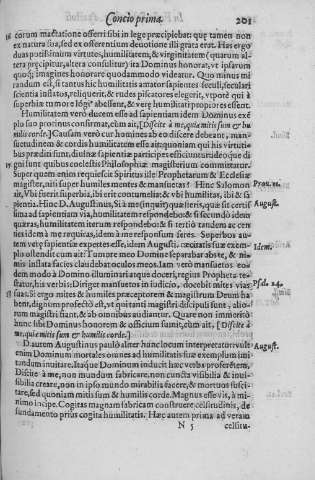 Concio prima. 201
eorum mactatione offerri sibi in lege præcipiebat: quę tamen non
ex natura sua, sed ex offerentium deuotione illi grata erat. Has ergo
duas potissimùm virtutes, humilitatem, & virginitatem (quarum al-
tera præcipitur, altera consulitur) ita Dominus honorat, vt ipsarum
quoq; imagines honorare quodammodo videatur. Quo minus mi
randum est, si tantus hic humilitatis amator sapientes seculi, seculari
scientia inflatos, reliquerit, & rudes piscatores elegerit, vtpote qui à
superbiæ tumore longius abessent, & veræ humilitati propiores essent.
Humilitatem verò ducem esse ad sapientiam idem Dominus exē
plo suo protinus confirmat, cùm ait, [Discite à me, quia mitis sum & hu
milis corde.] Causam verò cur homines ab eo discere debeant, man-
suetudinem & cordis humilitatem esse ait: quoniam qui his virtuti-
bus præditi sunt, diuinæ sapientiæ participes efficiuntur: ideoque di
gni sunt quibus cœlestis Philosophiæ magisterium committatur.
Super quem enim requiescit Spiritus ille Prophetarum & Ecclesiæ
magister, nisi super humiles mentes & mansuetas? Hinc Salomon Prou. 11.
ait, Vbi fuerit superbia, ibi erit contumelia: & vbi humilitas, ibi & sa
pientia. Hinc D. Augustinus, Si à me (inquit) quæsieris, quæ sit certis August.
sima ad sapientiam via, humilitatem respondebo: & si secundò idem
quæras, humilitatem iterum respondebo: & si tertiò tandem ac cen
ties idem à me requiras, idem à me responsum feres. Superbos au-
tem veræ sapientiæ expertes esse, idem Augusti. cæcitatis suæ exem- Idem.
plo ostendit cum ait: Tumore meo Domine separabar abs te, & ni-
mis inflata facies claudebat oculos meos. Iam verò mansuetos eo-
dem modo à Domino illuminari atque doceri, regius Propheta te-
statur, his verbis: Diriget mansuetos in iudicio, docebit mites vias Psal. 24.
suas. Si ergo mites & humiles præceptorem & magistrum Deum ha
bent, dignum profectò est, vt qui tanti magistri discipuli sunt, alio-
rum magistri fiant, & ab omnibus audiantur. Quare non immeritò
hunc sibi Dominus honorem & officium sumit, cùm ait, [Discite à
me, quia mitis sum & humilis corde.]
D. autem Augustinus paulò aliter hunc locum interpretatur: vult August.
enim Dominum mortales omnes ad humilitatis suæ exemplum imi
tandum inuitare. Itaque Dominum inducit hæc verba proferētem.
Discite à me, non mundum fabricare, non cuncta visibilia & inui-
sibilia creare, non in ipso mundo mirabilia facere, & mortuos susci-
tare, sed quoniam mitis sum & humilis corde. Magnus esse vis, à mi-
nimo incipe. Cogitas magnam fabricam construere celsitudinis, de
fundamento prius cogita humilitatis. Hæc autem prima ad veram
N 5 celsitu-